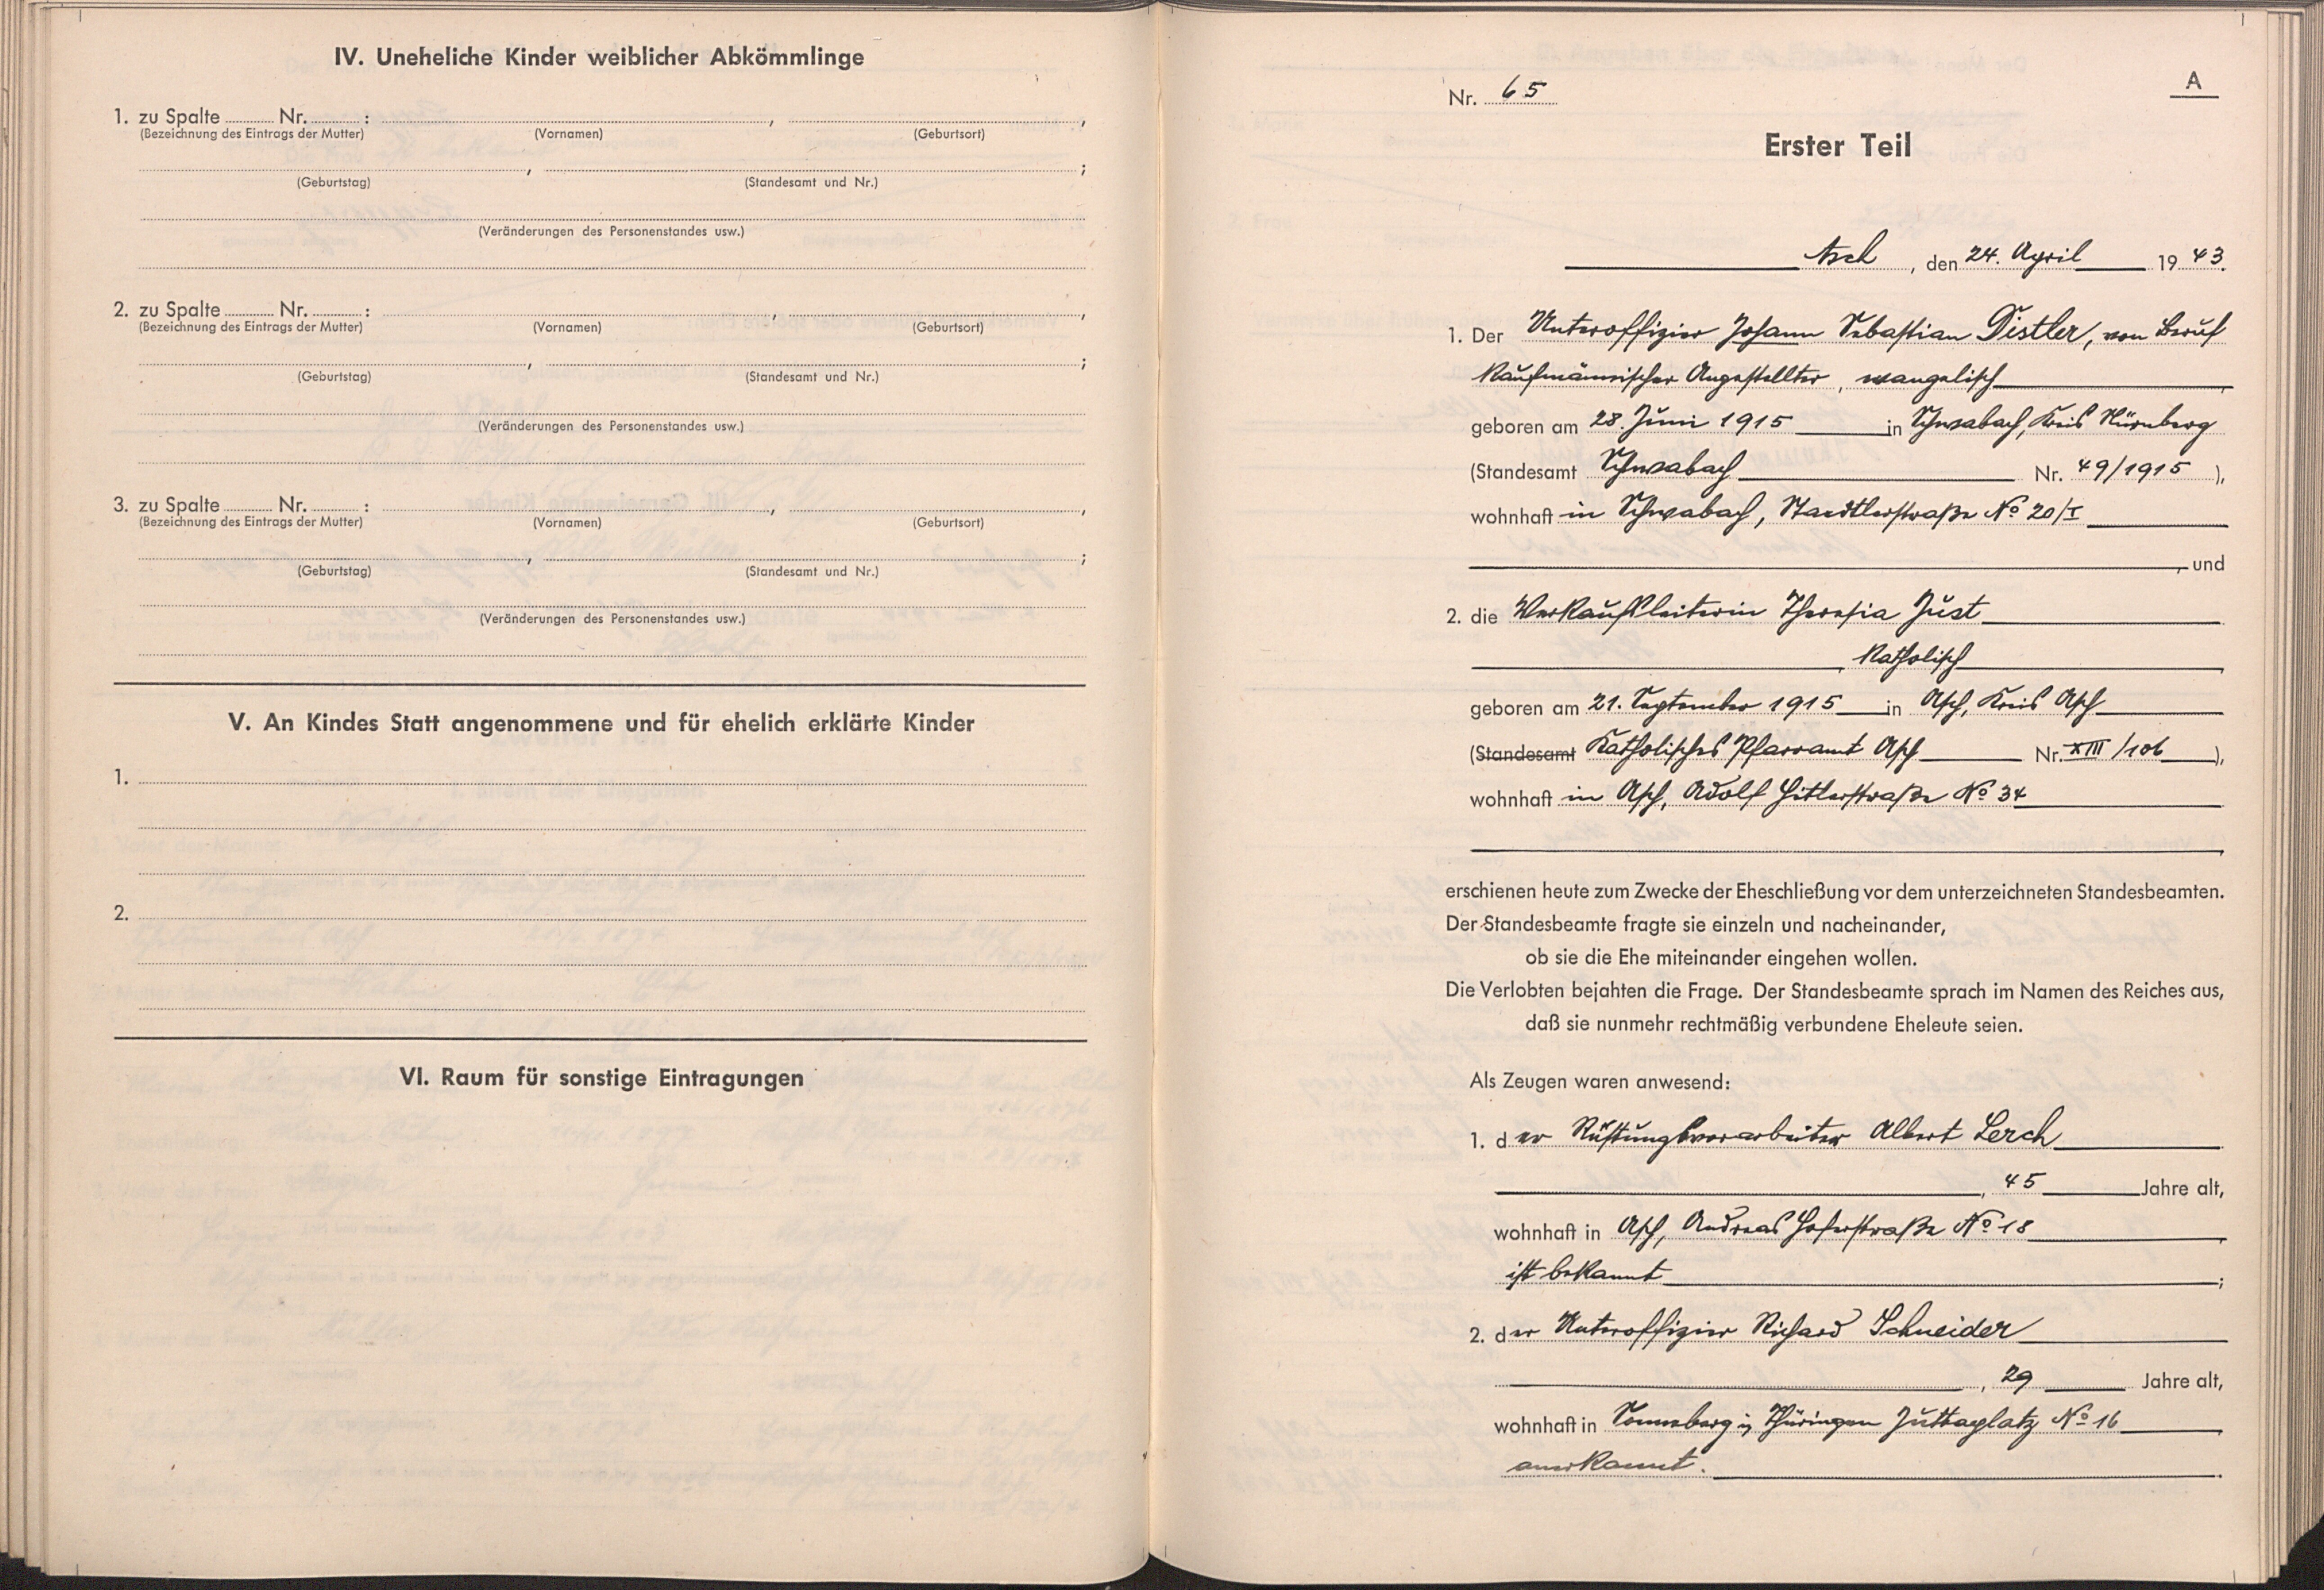 IV. Uneheliche Kinder weiblicher Abkömmlinge
1. zu Spalte Nr. : , ,
(Bezeichnung des Eintrags der Mutter) (Vornamen) (Geburtsort)
, ;
(Geburtstag) (Standesamt und Nr.)
(Veränderungen des Personenstandes usw.)
2. zu Spalte Nr. : , ,
(Bezeichnung des Eintrags der Mutter) (Vornamen) (Geburtsort)
, ;
(Geburtstag) (Standesamt und Nr.)
(Veränderungen des Personenstandes usw.)
3. zu Spalte Nr. : , ,
(Bezeichnung des Eintrags der Mutter) (Vornamen) (Geburtsort)
, ;
(Geburtstag) (Standesamt und Nr.)
(Veränderungen des Personenstandes usw.)
V. An Kindes Statt angenommene und für ehelich erklärte Kinder
1.
2.
VI. Raum für sonstige Eintragungen
A
Nr. 65
Erster Teil
Asch, den 24. April 1943.
1. Der Unteroffizier Johann Sebastian Distler, von Beruf
kaufmännischer Angestellter, evangelisch,
geboren am 28. Juni 1915 in Schwabach, Kreis Nürnberg
(Standesamt Schwabach Nr. 49/1915),
wohnhaft in Schwabach, Staedtlerstraße No 20/I
, und
2. die Verkaufsleiterin Theresia Just
, katholisch,
geboren am 21. September 1915 in Asch, Kreis Asch
(Standesamt Katholisches Pfarramt Asch Nr. XIII/106),
wohnhaft in Asch, Adolf Hitlerstraße No 34
,
erschienen heute zum Zwecke der Eheschließung vor dem unterzeichneten Standesbeamten.
Der Standesbeamte fragte sie einzeln und nacheinander,
ob sie die Ehe miteinander eingehen wollen.
Die Verlobten bejahten die Frage. Der Standesbeamte sprach im Namen des Reiches aus,
daß sie nunmehr rechtmäßig verbundene Eheleute seien.
Als Zeugen waren anwesend:
1. der Rüstungsvorarbeiter Albert Lerch
, 45 Jahre alt,
wohnhaft in Asch, Andreas Hoferstraße No 18,
ist bekannt;
2. der Unteroffizier Richard Schneider
, 29 Jahre alt,
wohnhaft in Sonneberg in Thüringen Juttaplatz No 16,
anerkannt.